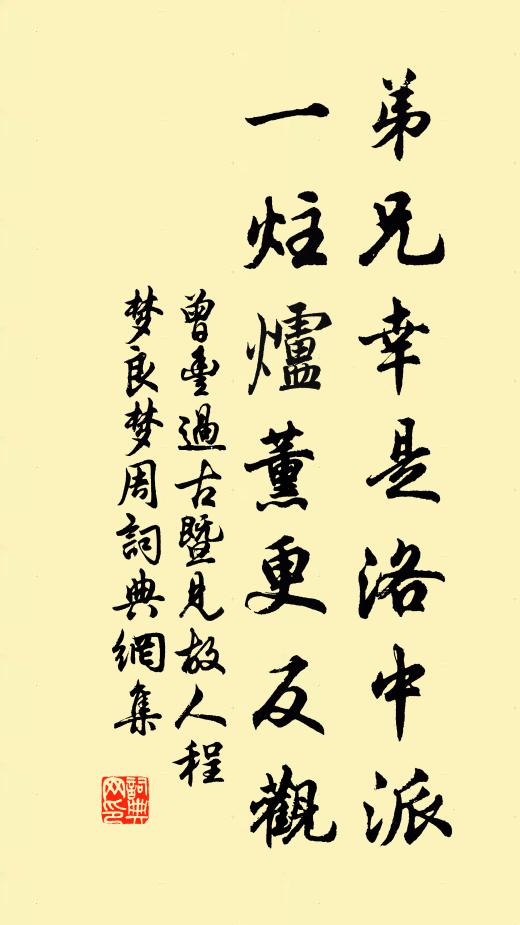 弟兄幸是洛中派
一炷爐薰更反觀
曾豊過古暨見故人程
梦良梦周詞典網集
詞典网印